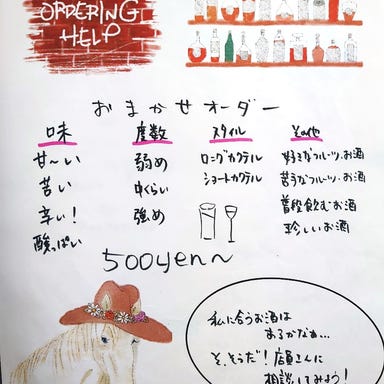 ORDERING
HELP
おまかせオーダー
味
甘〜い
苦い
辛い!
酸っぱい
度数
弱め
中くらい
強め
スタイル
ロングカクテル
ショートカクテル
その他
好きなフルーツ・お酒
苦手なフルーツ・お酒
普段飲むお酒
珍しいお酒
500yen〜
私に合うお酒は
あるかなぁ…
そ、そうだ!店員さんに
相談してみよう!